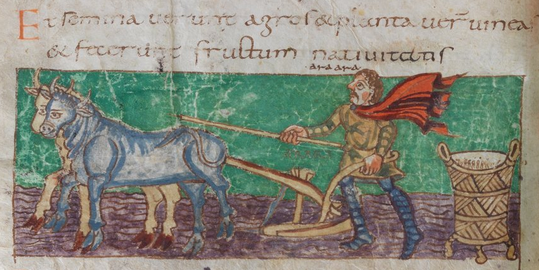 Et semina uerunt agros & planta uer̄ uineas
& fecerunt fructum natiuitatis